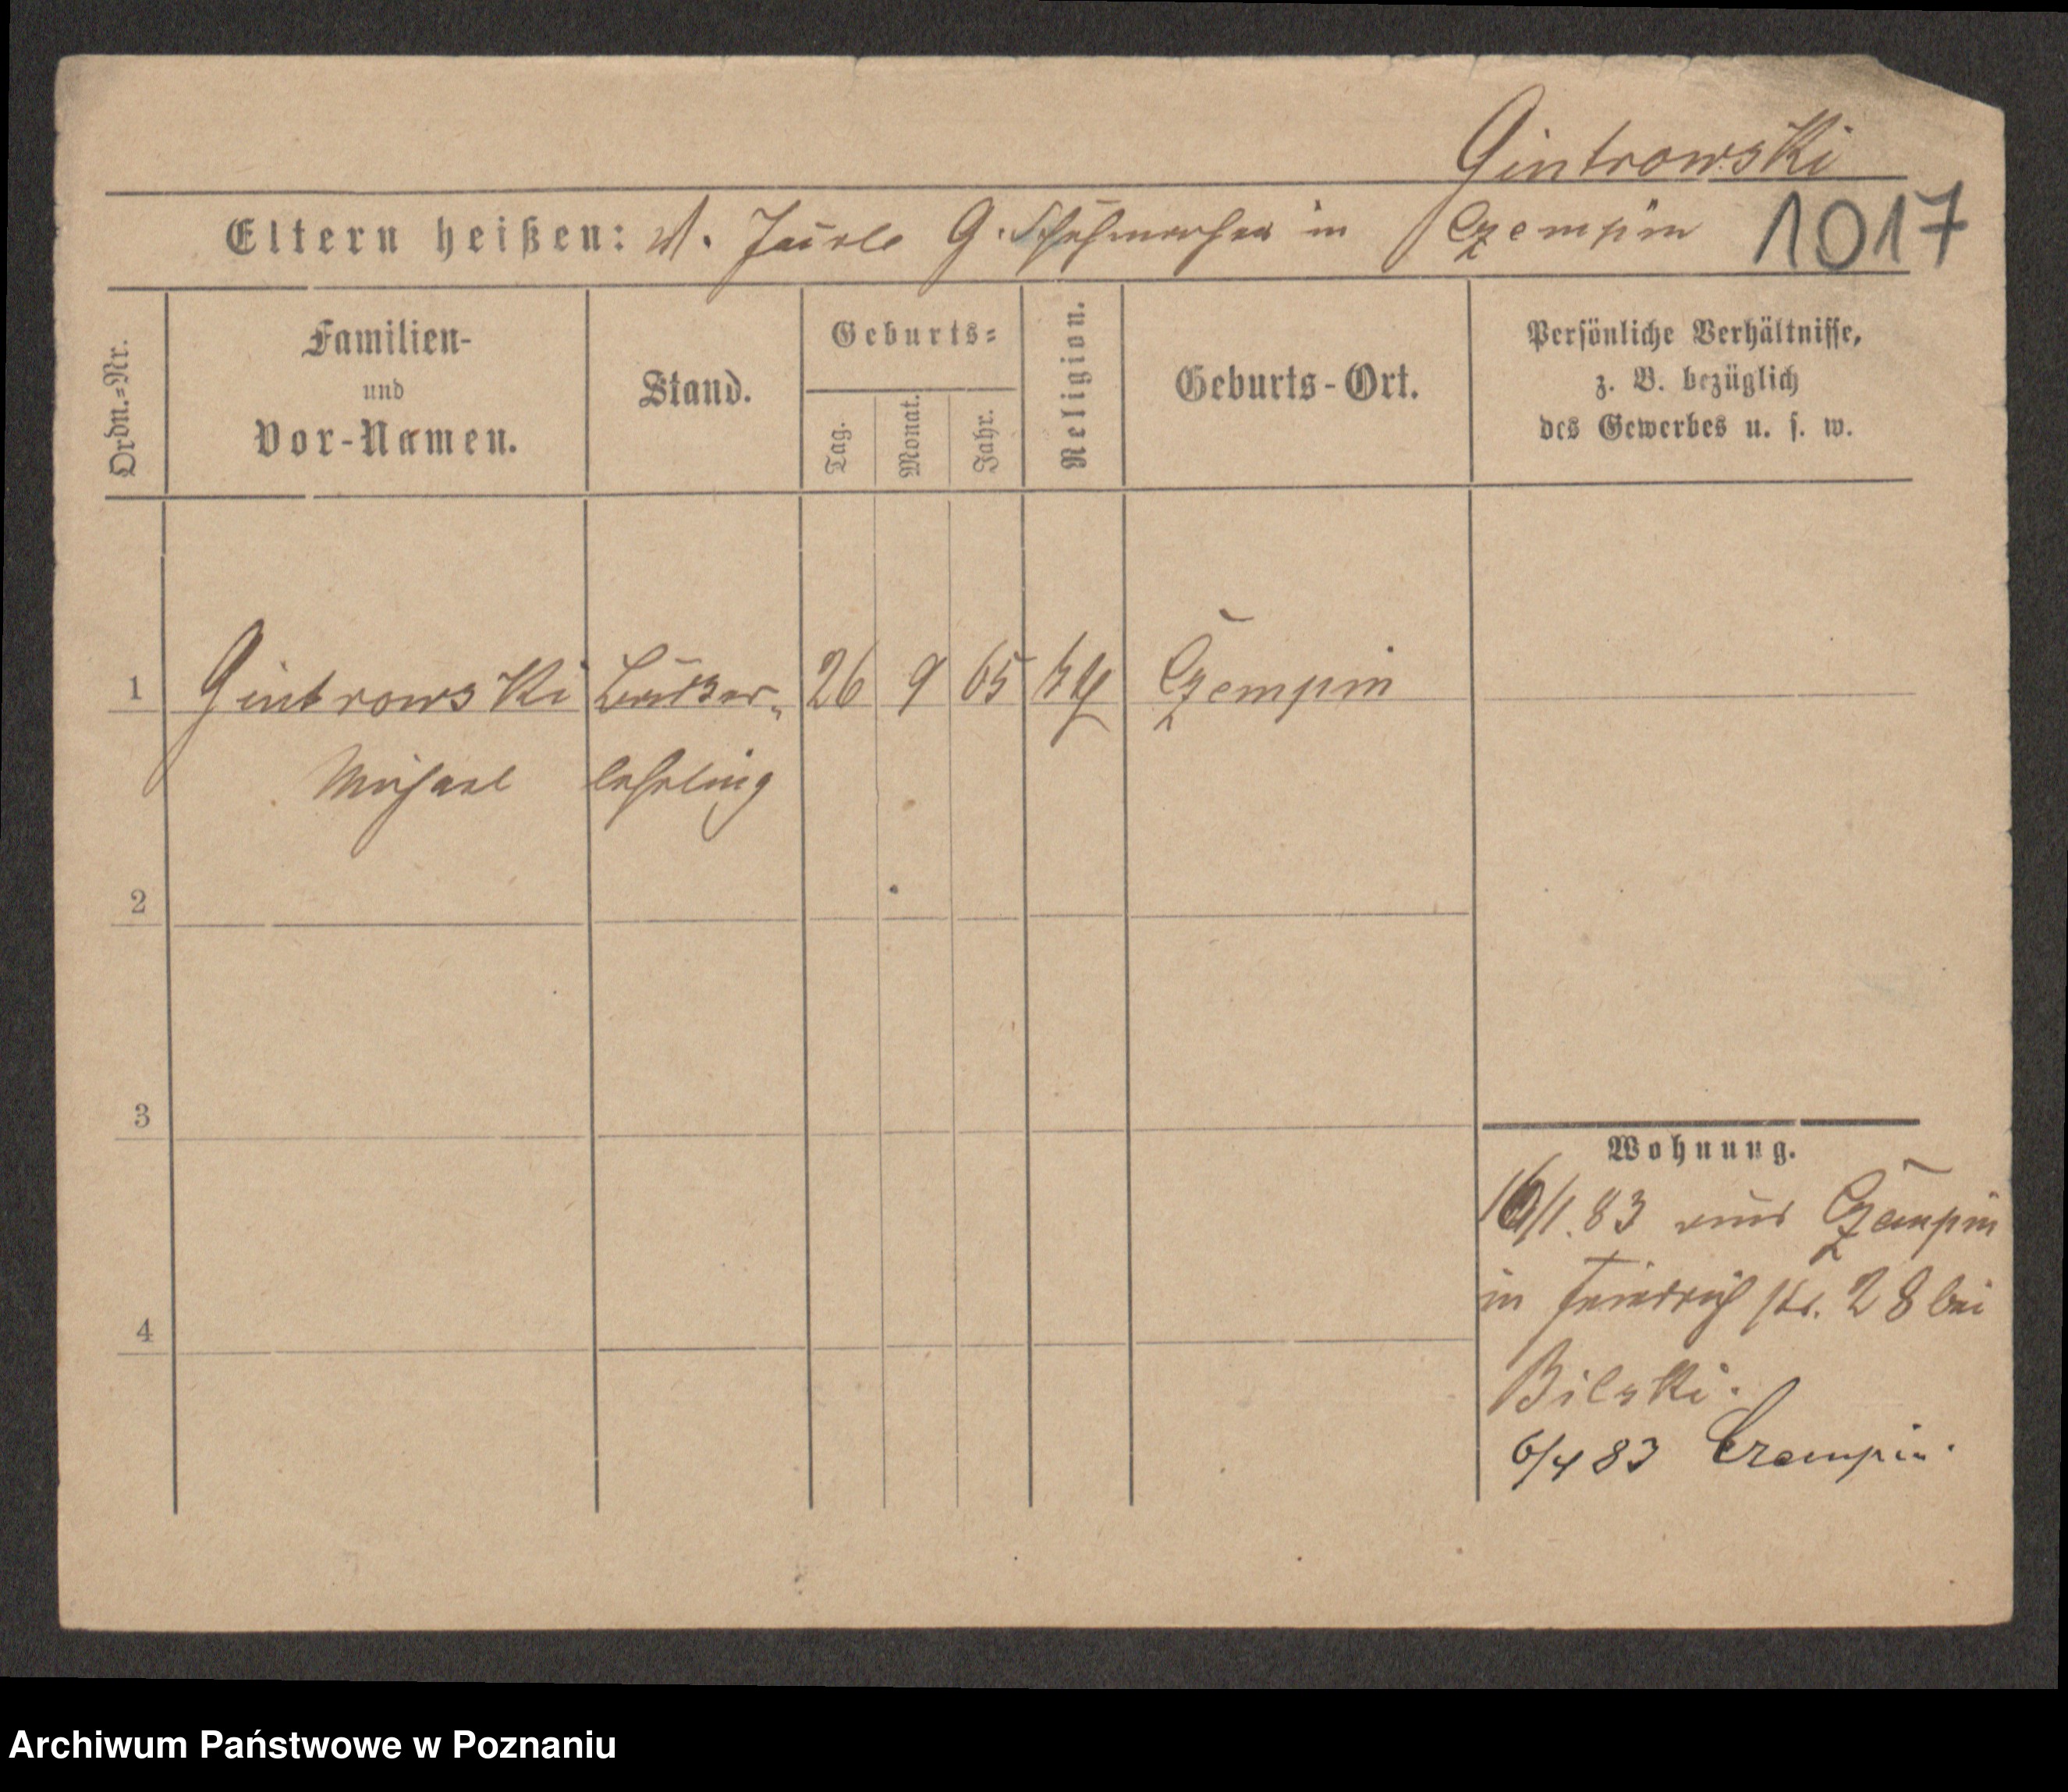 Gintrowski
Eltern heißen: V. Paul G. Schuhmacher in Czempin 1017
Ordn.=Nr.
Familien-
und
Vor-Namen.
Stand.
Geburts=
Tag.
Monat.
Jahr.
Religion.
Geburts-Ort.
Persönliche Verhältnisse,
z. B. bezüglich
des Gewerbes u. s. w.
1 Gintrowski 26 9 65 kth Czempin
Michael lehrling
2
3
4
Wohnung.
/1.83 aus Czempin
in Friedrich str. 28 bei
Bilski.
6/4 83 Czempin.
Archiwum Państwowe w Poznaniu